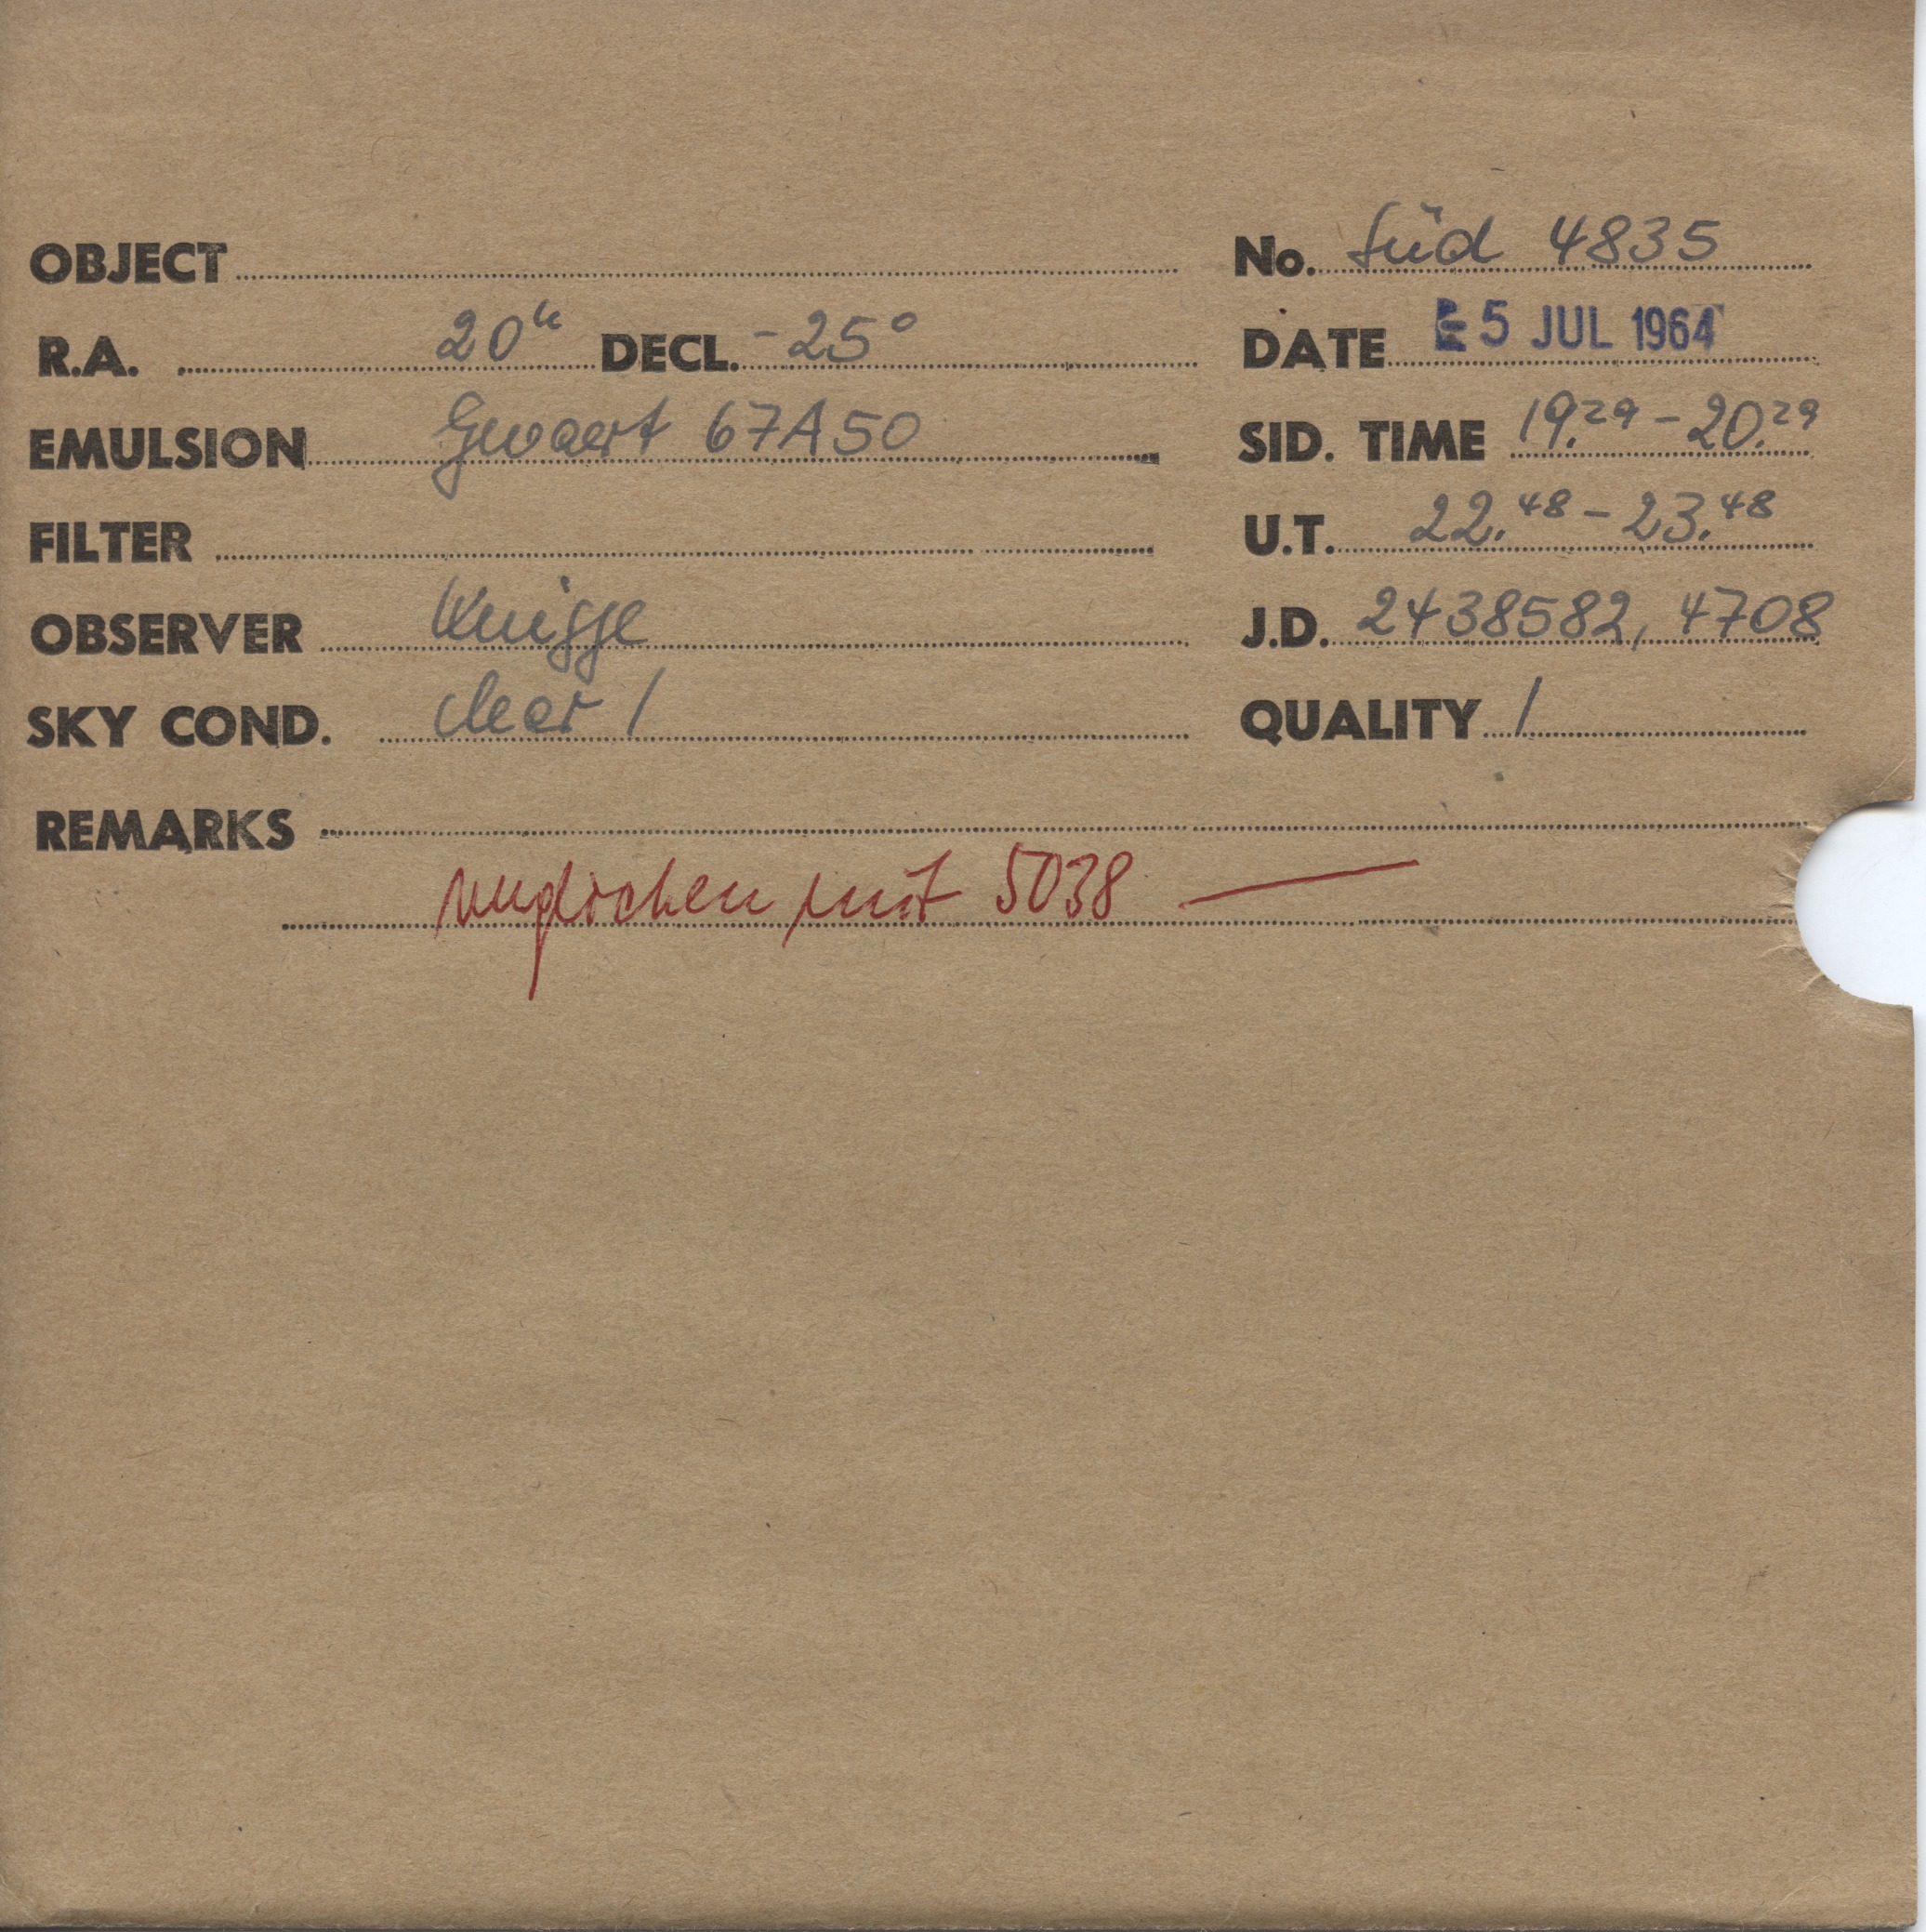 OBJECT
No. Süd 4835
R.A. 20h DECL. -25°
DATE 5 JUL 1964
EMULSION Gevaert 67A50
SID. TIME 19.29 - 20.29
FILTER
U.T. 22.48 - 23.48
OBSERVER Knigge
J.D. 2438582,4708
SKY COND. clear 1
QUALITY 1
REMARKS
verglichen mit 5038 —